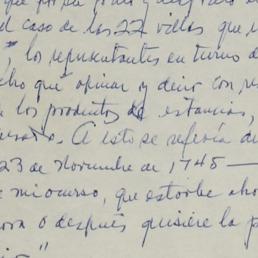 el caso de las 22 villas que
los representantes en turno d
cho que opinar y decir con re
los productos de estancias,
A esto se referia d
23 de Noviembre de 1745 —
e mi ocurso, que estorbe aho
ora o después quisiere la p